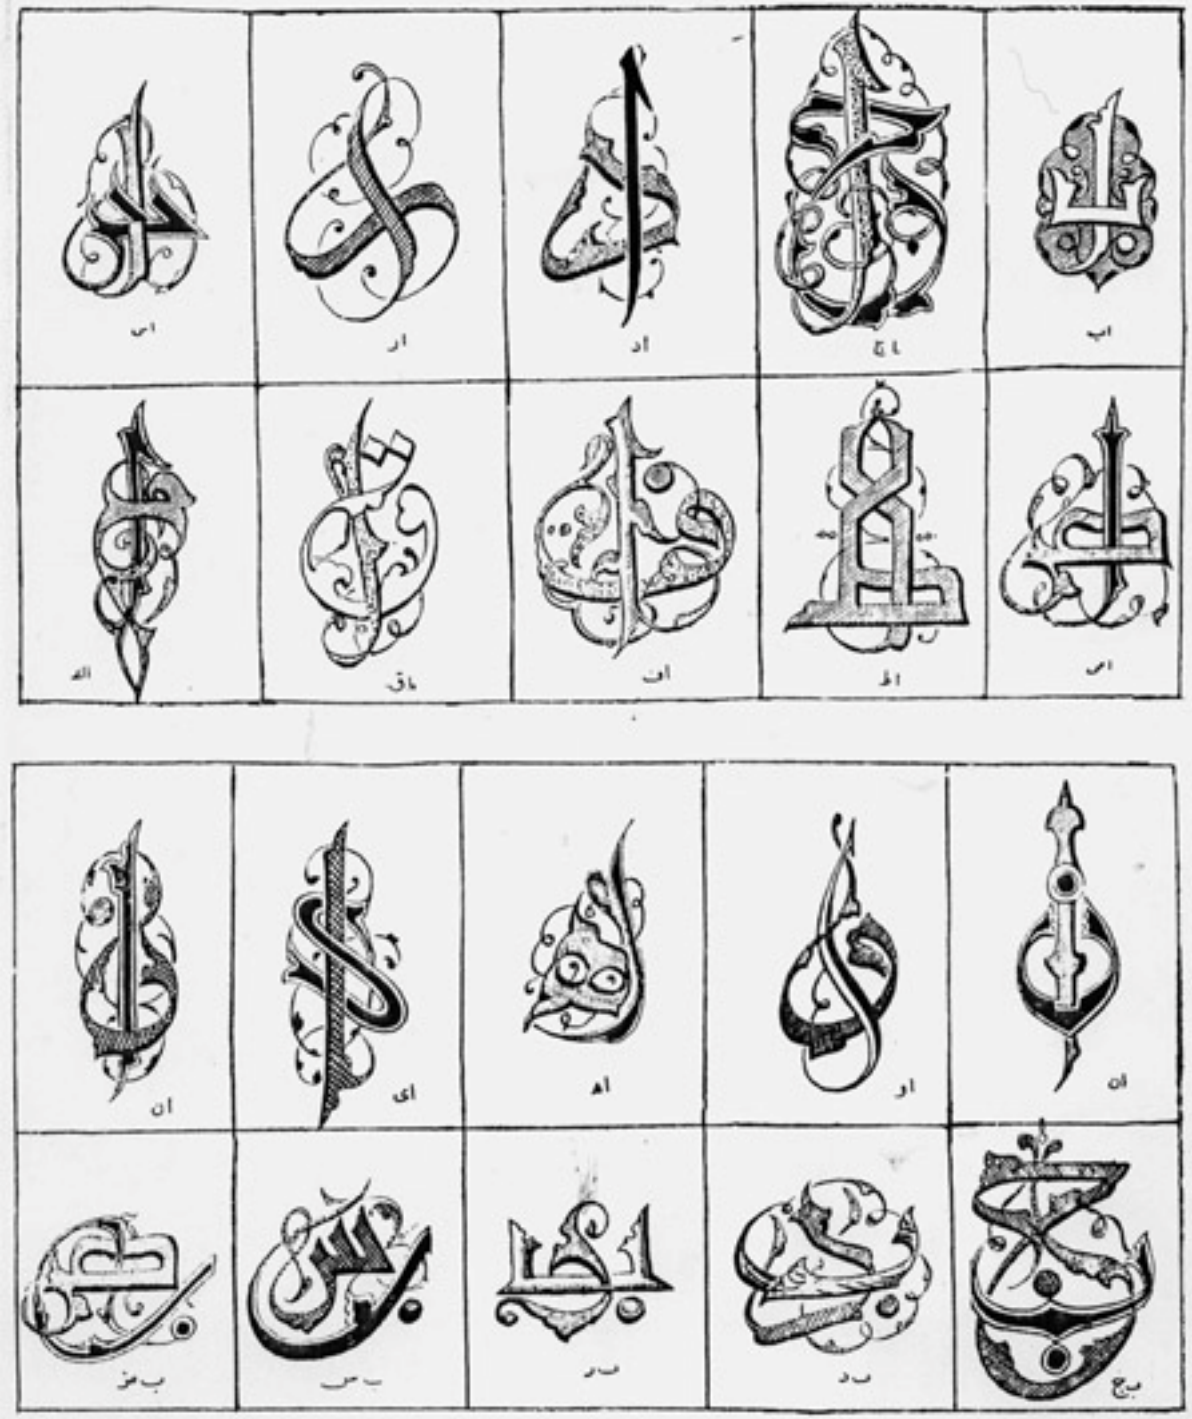 اب
اج
اد
ار
اس
اص
اط
اف
اق
اك
ان
او
اه
اى
ان
ب ج
ب د
ب ر
ب س